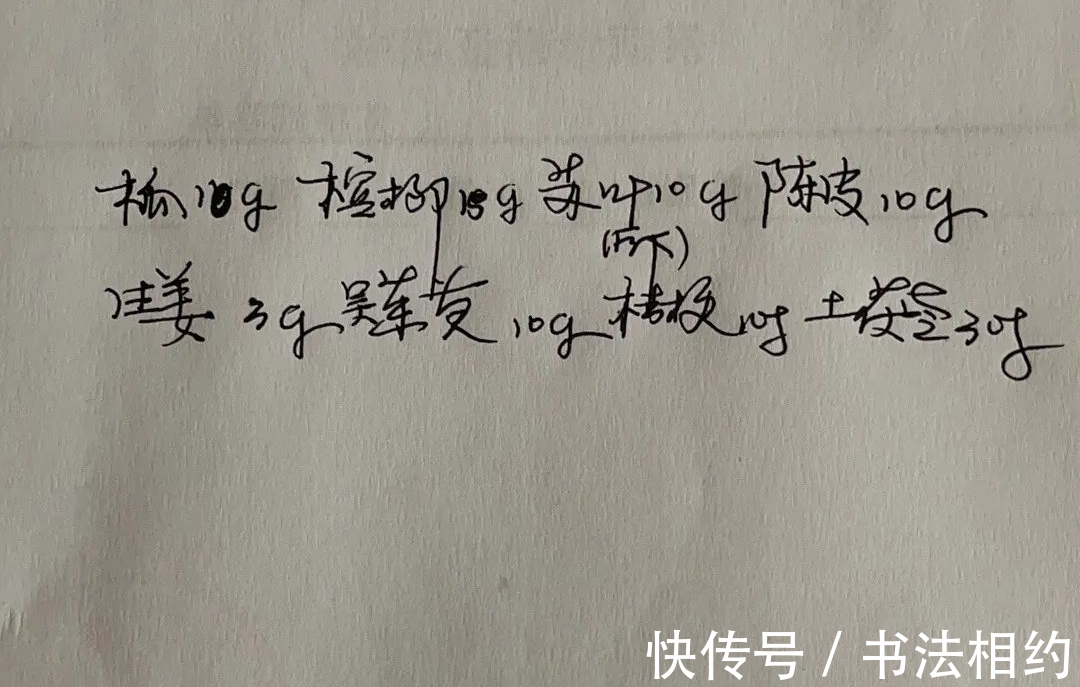 木瓜10g 槟榔 苏叶10g 陈皮10g
(后下)
生姜 3g 吴茱萸10g 桔梗10g 土茯苓30g
快传号 / 书法相约